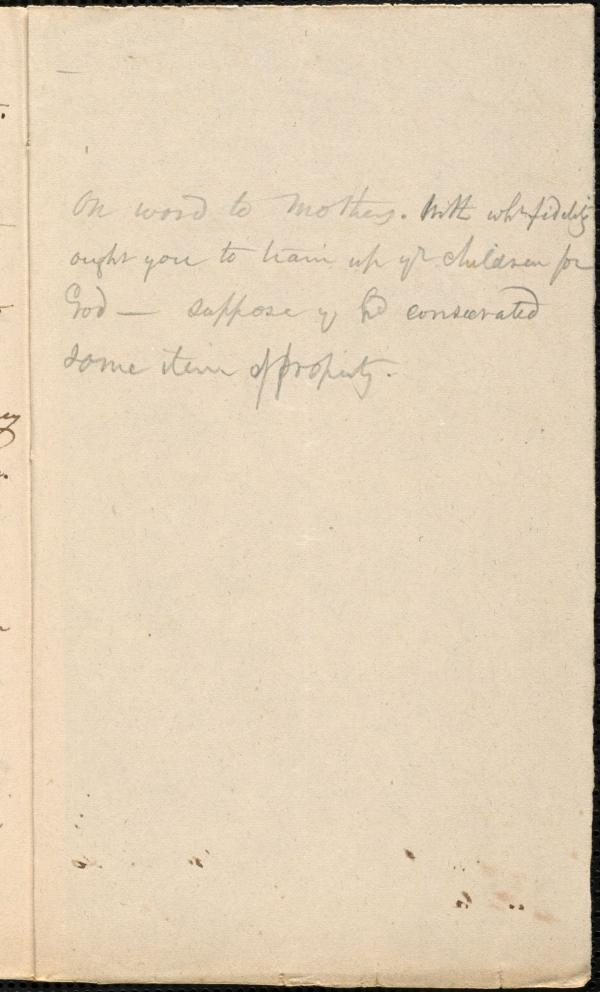 On word to Mothers. With wh fidelity
ought you to train up yr children for
God — suppose y hd consecrated
some item of property.